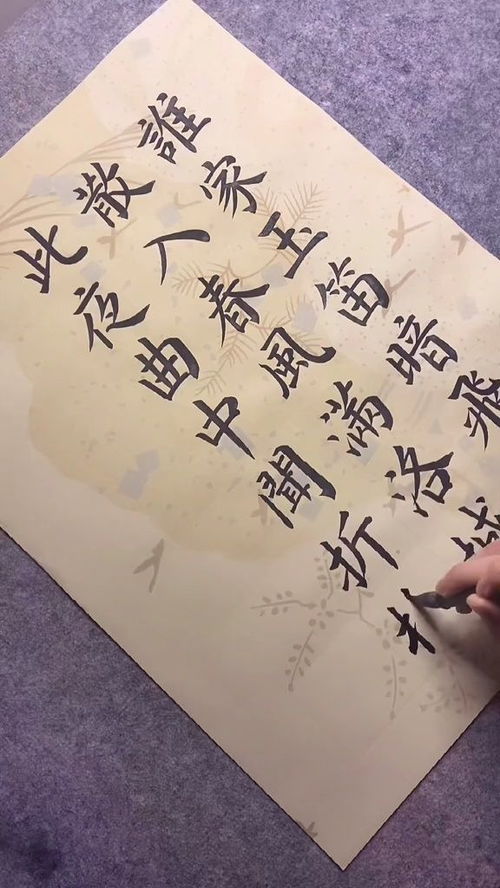 誰家玉笛暗飛
散入春風滿洛城
此夜曲中聞折